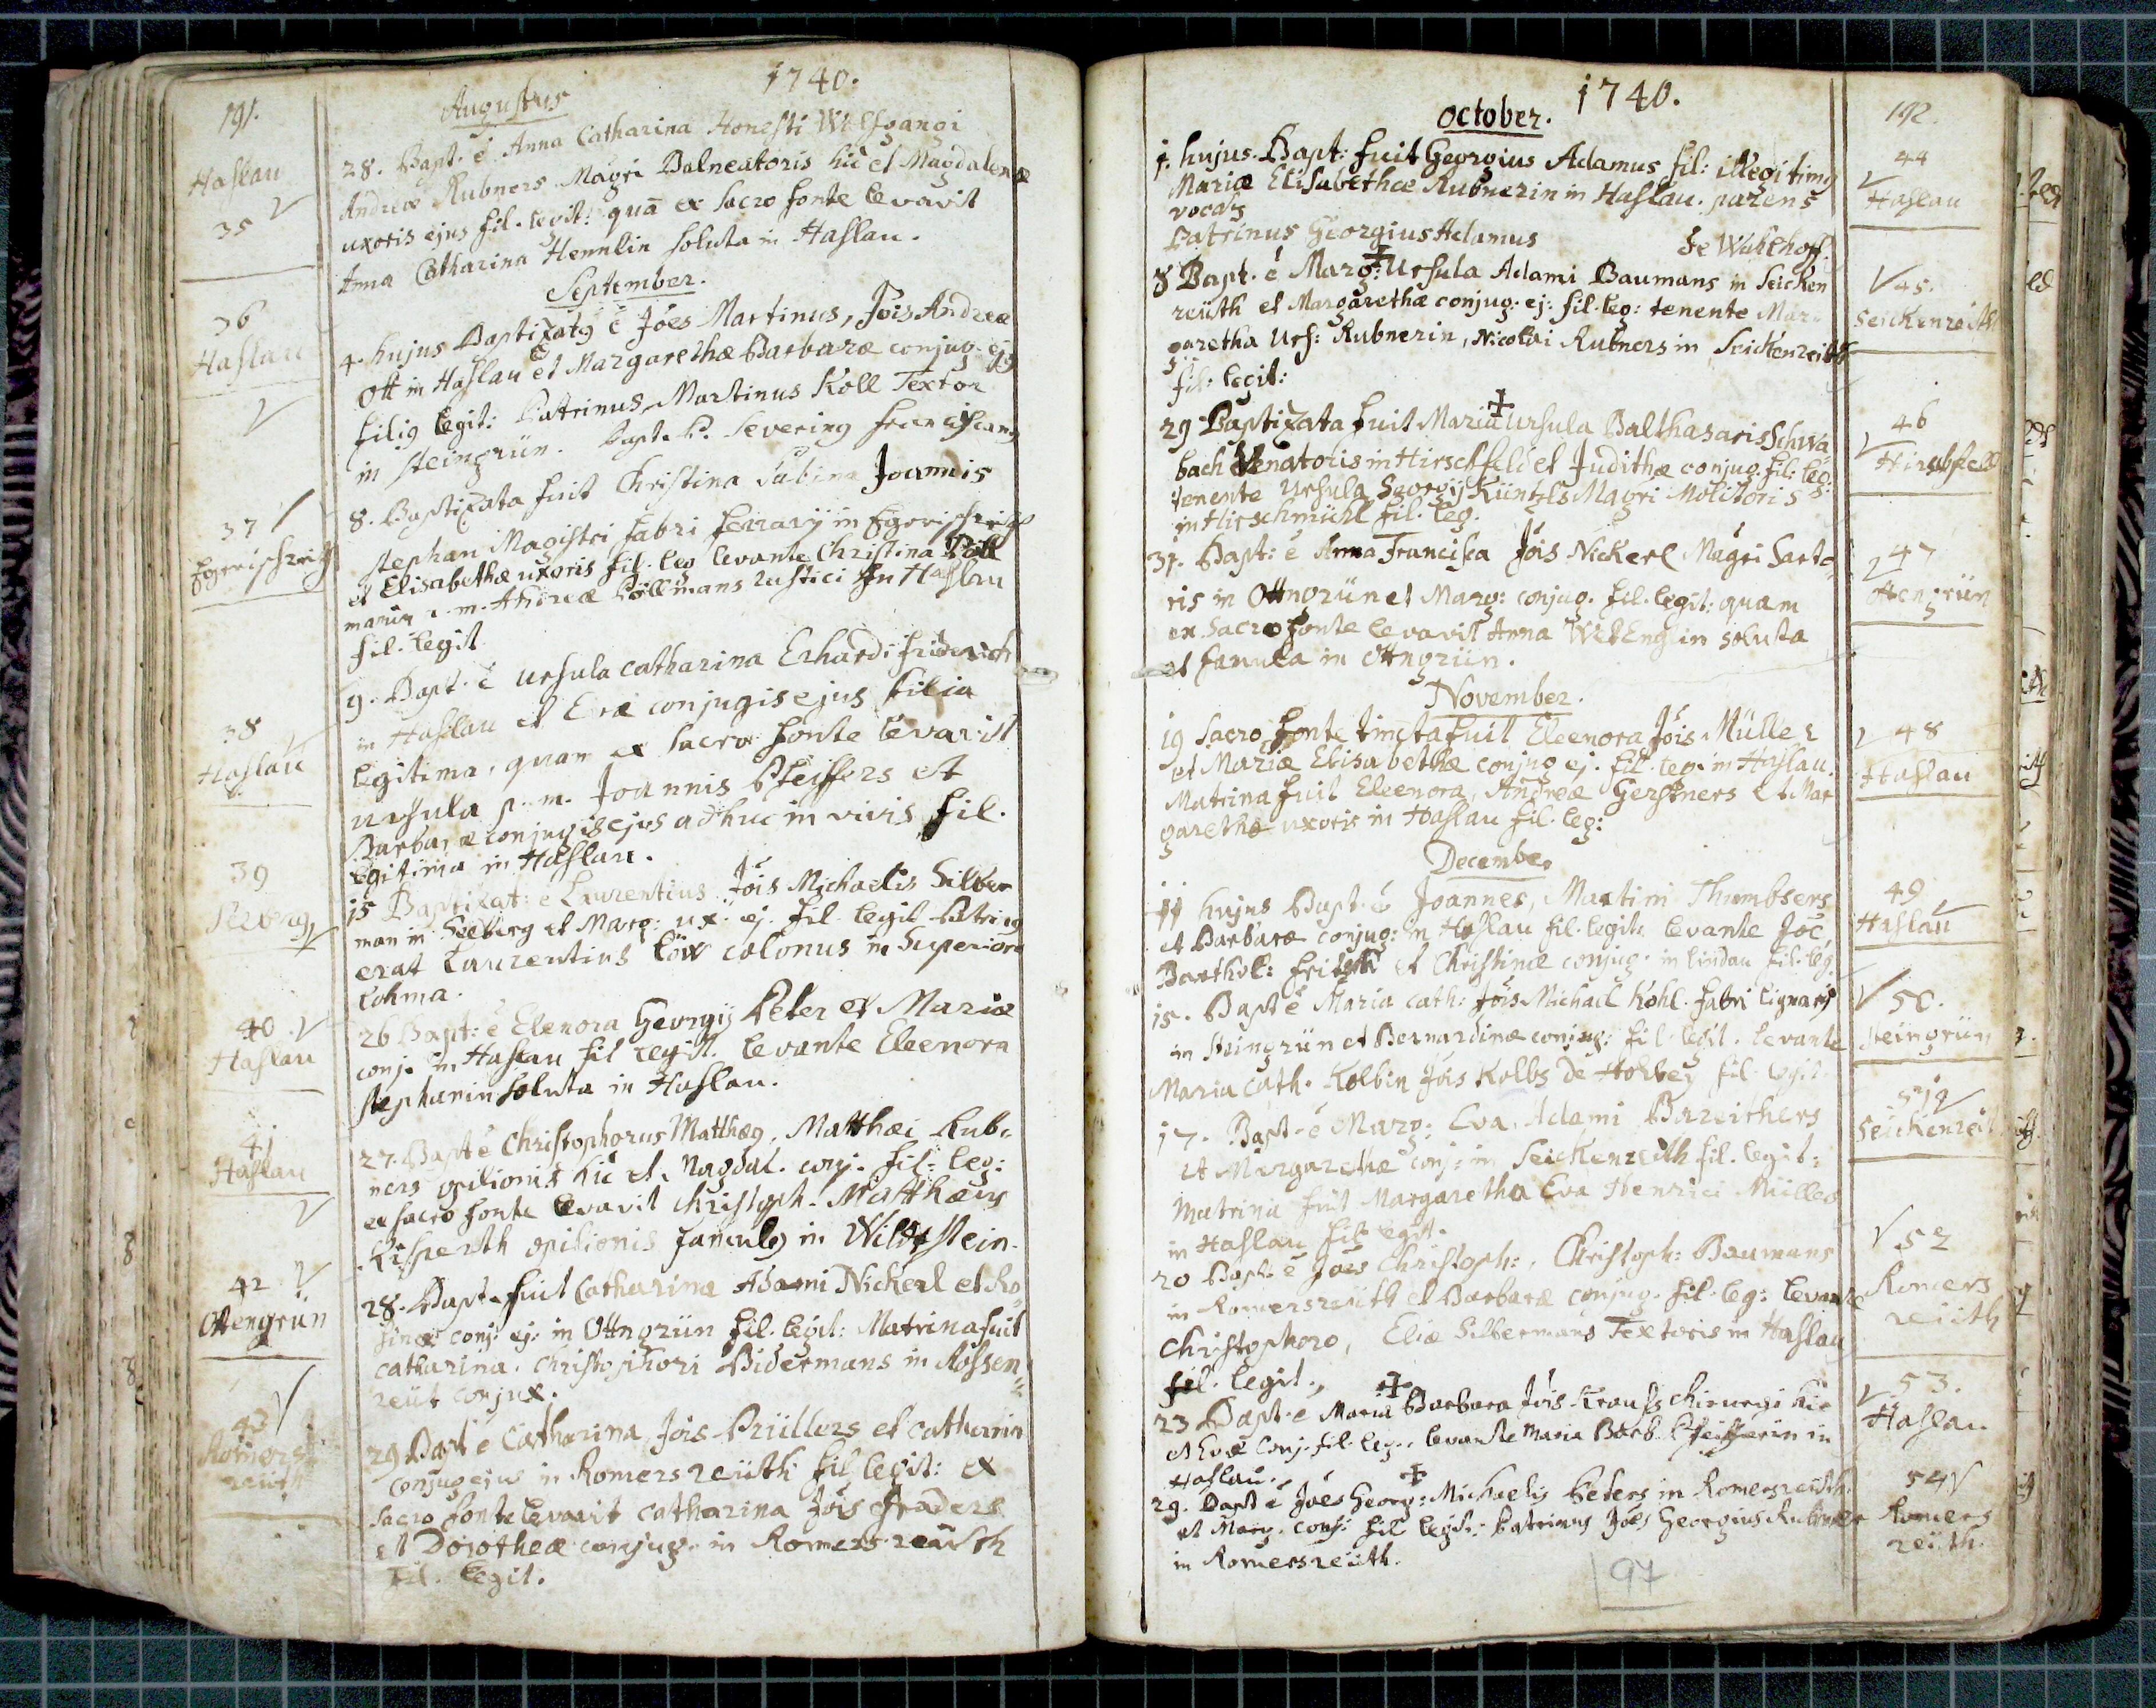 191.
1740.
Augustus
Haslau
35
28. Bapt. ē Anna Catharina Honesti Wolfgangi
Andreæ Rubners Magri Balneatoris hic et Magdalenæ
uxoris ejus fil. legit: quā ex sacro fonte levavit
Anna Catharina Hennlin soluta in Haslau.
September.
36
Haslau
4. hujus Baptizatg ē Jões Martinus, Jois Andreæ
Ott in Haslau et Margarethæ Barbaræ conjug. ejg
filig legit: Patrinus Martinus Koll Textor
in Steingrün. Bapt. P. Severing Franciscang
37
8. Baptizata fuit Christina Sabina Joannis
Stephan Magistri fabri ferrarij in
et Elisabethæ uxoris fil. leg levante Christina Pöll
p. m. Andreæ Pöllmans rustici in Haslau
fil. legit
38
Haslau
9. Bapt. ē Ursula Catharina Erhardi Friderich
in Haslau et Evæ conjugis ejus filia
legitima, quam ex sacro fonte levavit
Ursula p. m. Joannis Pfeiffers et
Barbaræ conjugis ejus adhuc in vivis fil.
legitima in Haslau.
39
Seeberg
15 Baptizat: ē Laurentius Jois Michaelis Silber
man in Seeberg et Marg: ux: ej. fil. legit Patring
erat Laurentius Löw colonus in Superiore
Lohma.
40
Haslau
26 Bapt: ē Elenora Georgij Peter et Mariæ
conj. in Haslau fil legit. levante Eleenora
Stephanin soluta in Haslau.
41
Haslau
27. Bapt ē Christophorus Matthæg, Matthæi Rub-
ners opilionis hic et Magdal. conj. fil: leg:
ex sacro fonte levavit Christoph. Matthæus
opilionis famulg in Wildstein.
42
Ottengrün
28. Bapt. fuit Catharina Adami Nickerl et Ro
sinæ conj: ej: in Ottngrün fil. legit: Matrina fuit
Catharina Christophori Bidermans in Rossen
reüt conjux.
43
Romers
reüth
29 Bapt ē Catharina, Jois Prüllers et Catharin
conjug ejus in Romersreüth fil legit: ex
sacro fonte levavit Catharina Jois
et Dorotheæ conjug. in Romersreüth
fil. legit.
1740.
192.
October.
44
Haslau
1. hujus. Bapt: fuit Georgius Adamus fil: illegitimg
Mariæ Elisabethæ Rubnerin in Haslau. parens
vocatg
Patrinus Georgius Adamus de Wahlhoff.
45.
Seickenreüth
8 Bapt. ē Marg: Ursula Adami Baumans in Seicken
reüth et Margarethæ conjug: ej: fil. leg: tenente Mar-
garetha Urs: Rubnerin, Nicolai Rubners in Seickenreüth
fil: legit:
46
Hirschfeld
29 Baptizata fuit Maria Ursula Balthasaris Schwa
bach Venatoris in Hirschfeld et Judithæ conjug. fil: leg:
tenente Ursula Georgij Küntzls Magri Molitoris
in Hirschmühl fil. leg.
47
Ottengrün
31. Bapt: ē Anna Francisca Jois Nickerl Magri Sarto
ris in Ottngrün et Marg: conjug. fil. legit: quam
ex Sacro fonte levavit Anna soluta
et famula in Ottngrün.
November.
48
Haslau
19 Sacro fonte tincta fuit Eleenora Jois Müller
et Mariæ Elisabethæ conjug ej. fil. leg. in Haslau.
Matrina fuit Eleenora, Andreæ Gerstners et Mar
garethæ uxoris in Haslau fil. leg:
December
49
Haslau
11 hujus Bapt. ē Joannes, Martini Thumbsers
et Barbaræ conjug: in Haslau fil. legit. levante Joe
Barthol: et Christinæ conjug. in Lindau fil. leg.
50.
Steingrün
15. Bapt ē Maria Cath: Jois Michael Kohl fabri lignarij
in Steingrün et Bernardinæ conjug: fil. legit. levante
Maria Cath. Kolbin Jois Kolbs de fil. legit.
51
Seickenreüt
17. Bapt. ē Marg: Eva, Adami Bareithers
et Margarethæ conj: in Seickenreüth fil. legit:
Matrina fuit Margaretha Eva Henrici Müllers
in Haslau fil. legit.
52
Romers
reüth
20 Bapt. ē Joes Christoph:, Christoph: Baumans
in Romersreüth et Barbaræ conjug. fil. leg: levante
Christophoro, Eliæ Silbermans Textoris in Haslau
fil. legit.
53.
Haslau
23 Bapt. ē Maria Barbara Jois Krauss chirurgi hic
et Evæ conj. fil. leg., levante Maria Barb. Pfeifferin in
Haslau.
54
Romers
reüth.
29. Bapt ē Joes Georg: Michaelis Peters in Romersreüth
et Marg. conj: fil legit: Patrinus Joes Georgius Rubner
in Romersreüth.
97